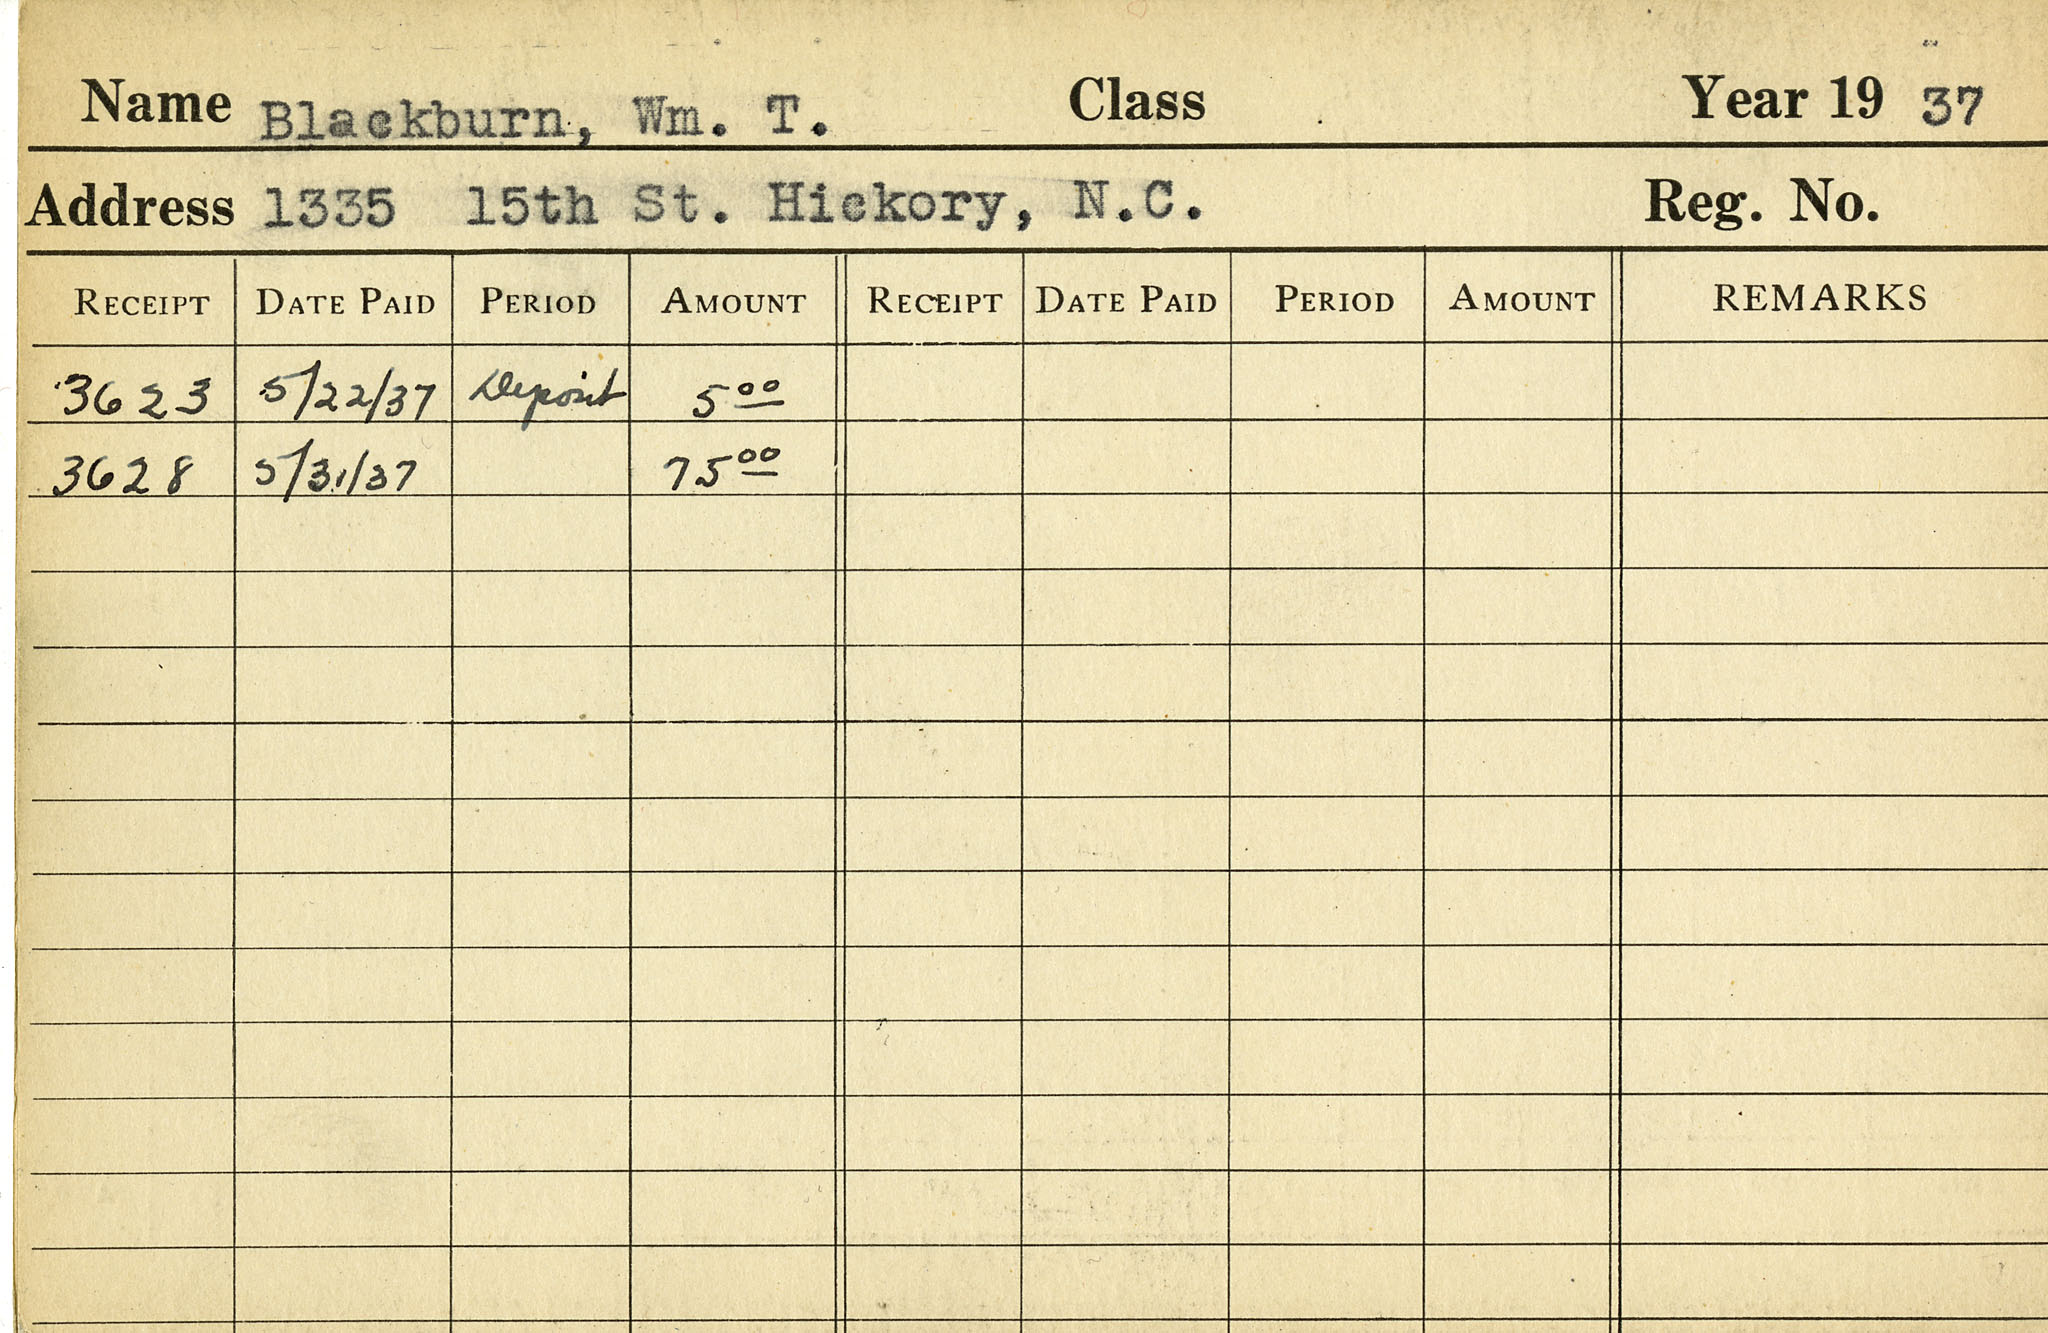 Name Blackburn, Wm. T. Class Year 19 37
Address 1335 15th St. Hickory, N.C. Reg. No.
RECEIPT DATE PAID PERIOD AMOUNT RECEIPT DATE PAID PERIOD AMOUNT REMARKS
3623 5/22/37 Deposit 5 00
3628 5/31/37 75 00